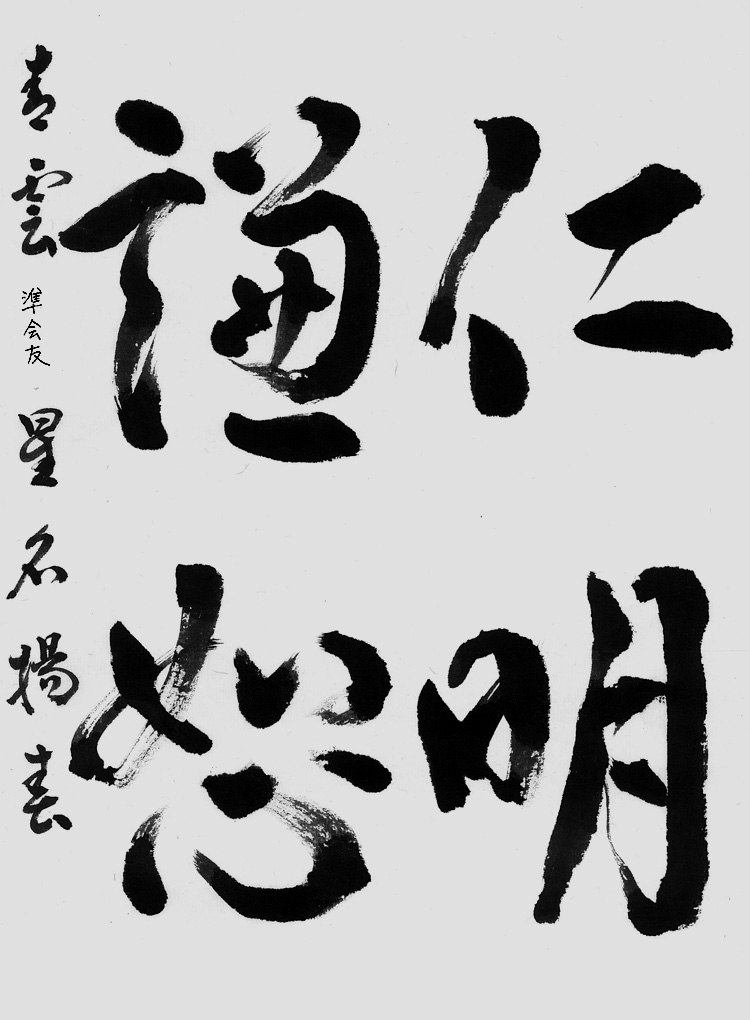 仁明
謙恕
青雲 準会友 星名揚春